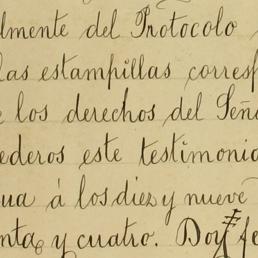 lmente del Protocolo
las estampillas corresp
e los derechos del Seña
ederos este testimonio
ua á los diez y nueve
nta y cuatro. Doy fe